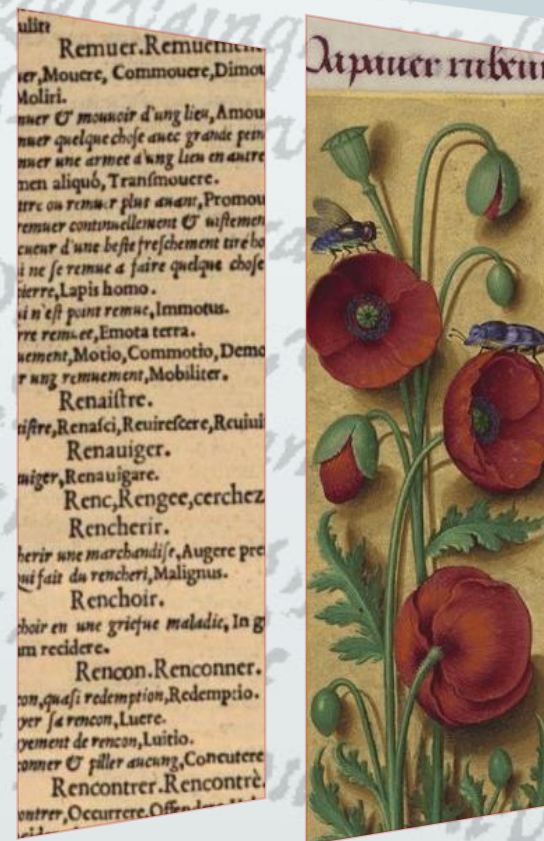 ulitè
Remuer.Remuement
er,Mouere, Commouere,Dimou
Moliri.
nuer & mouuoir d'ung lieu,Amou
nuer quelque chose auec grande pein
nuer une armee d'ung lieu en autre
men aliquò,Transmouere.
ttre ou remuer plus auant,Promou
remuer continuellement &
cueur d'une beste freschement tire ho
i ne se remue a faire quelque chose
ierre,Lapis homo.
ui n'est point remue,Immotus.
rre remuee,Emota terra.
uement,Motio,Commotio,Demo
r ung remuement,Mobiliter.
Renaistre.
istre,Renasci,Reuirescere,Reuiui
Renauiger.
uiger,Renauigare.
Renc,Rengee,cerchez
Rencherir.
herir une marchandise,Augere pre
ui fait du rencheri,Malignus.
Renchoir.
hoir en une griefue maladie, In g
am recidere.
Rencon.Renconner.
con,quasi redemption,Redemptio.
yer sa rencon,Luere.
yement de rencon,Luitio.
onner & piller aucung,Concutere
Rencontrer.Rencontrè.
ontrer,Occurrere,Offendere
Papauer rubeum